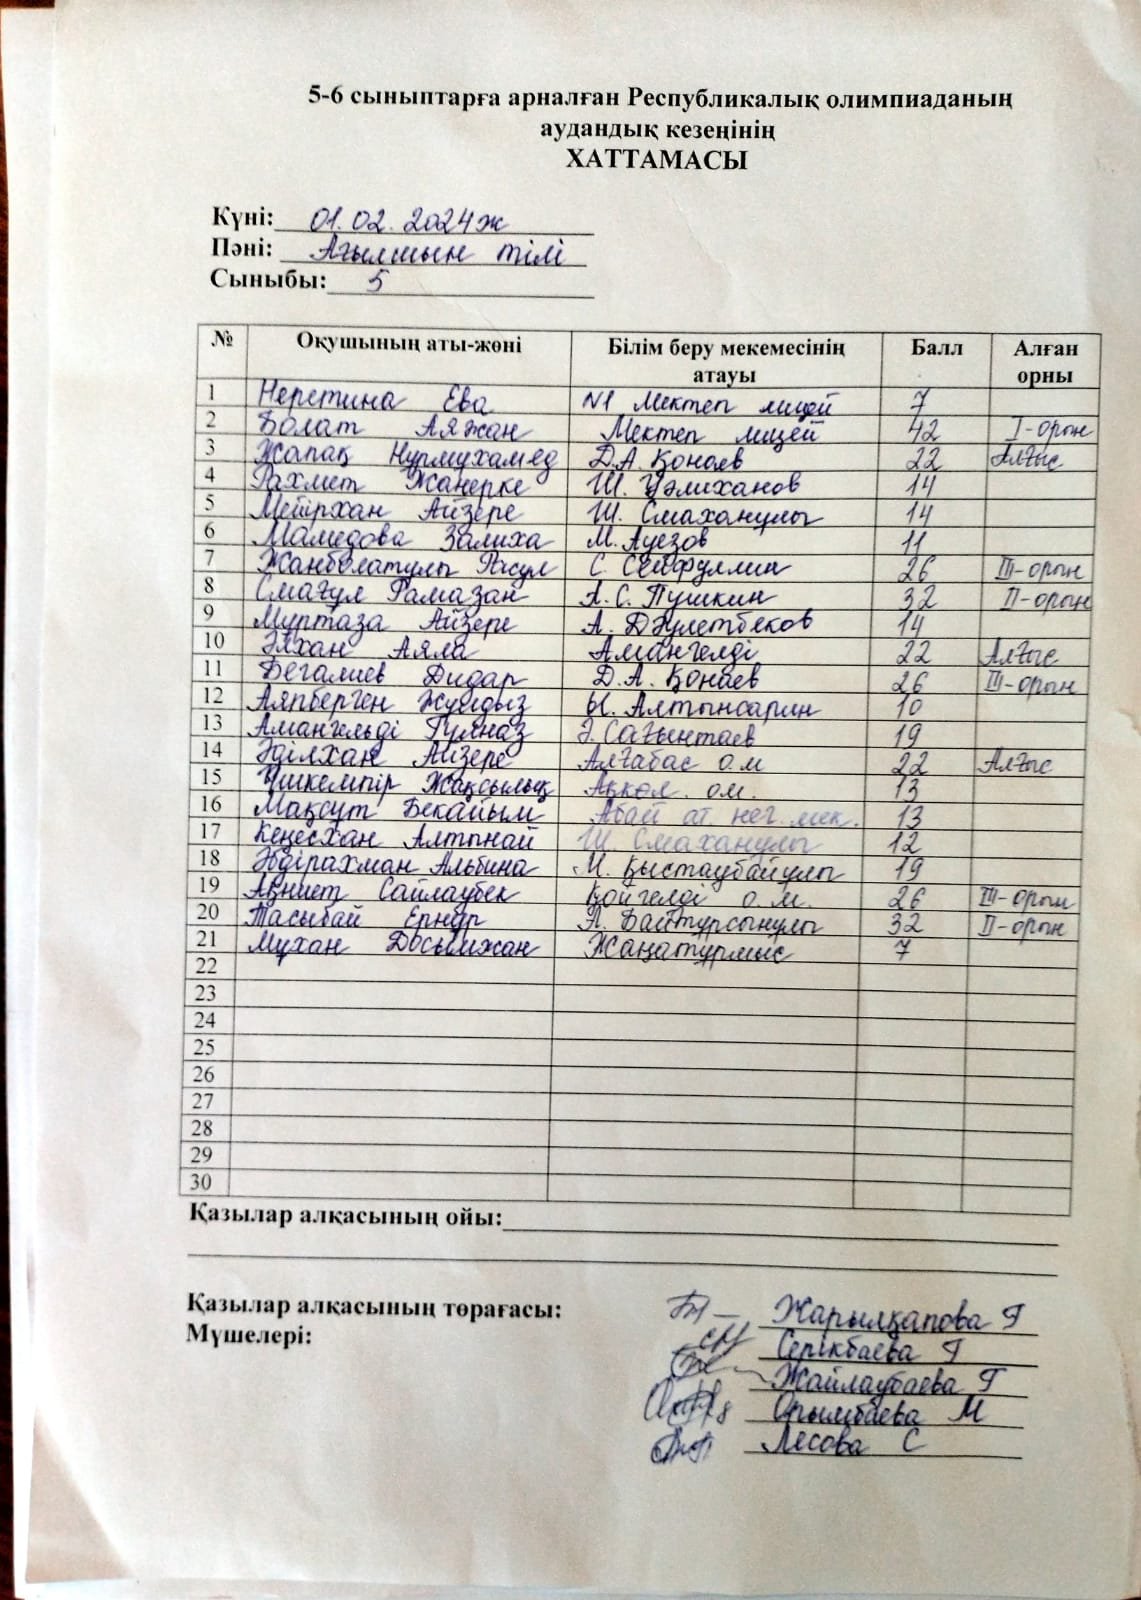 5-6 сыныптарға арналған Республикалық олимпиаданың
аудандық кезеңінің
ХАТТАМАСЫ
Күні: 01.02.2024ж
Пәні: Ағылшын тілі
Сыныбы: 5
№ Оқушының аты-жөні Білім беру мекемесінің атауы Балл Алған орны
1 Неретина Ева №1 Мектеп лицей 7
2 Болат Аяжан Мектеп лицей 42 I-орын
3 Жапақ Нұрмұхамед Д.А. Қонаев 22 Алғыс
4 Рахмет Жанерке Ш. Уәлиханов 14
5 Мейірхан Айзере Ш. Смаханұлы 14
6 Мамедова Залиха М. Ауезов 11
7 Жанболатұлы Расул С. Сейфуллин 26 III-орын
8 Смағұл Рамазан А.С. Пушкин 32 II-орын
9 Мұртаза Айзере А. Дәулетбеков 14
10 Әлхан Аяла Амангелді 22 Алғыс
11 Бегалиев Дидар Д.А. Қонаев 26 III-орын
12 Аяпберген Жұлдыз Ы. Алтынсарин 10
13 Амангельді Гүлназ Ә. Сағынтаев 19
14 Әділхан Айзере Алғабас о.м 22 Алғыс
15 Үшкемпір Жақсылық Ақкөл о.м. 13
16 Мақсұт Бекайым Абай ат. нег. мек. 13
17 Кеңесхан Алтынай Ш. Смаханұлы 12
18 Әбдірахман Альбина М. Қыстаубайұлы 19
19 Ақниет Сайлаубек Қойгелді о.м. 26 III-орын
20 Тасыбай Ернұр А. Байтұрсынұлы 32 II-орын
21 Мұхан Досымжан Жаңатұрмыс 7
22
23
24
25
26
27
28
29
30
Қазылар алқасының ойы:
Қазылар алқасының төрағасы: Жарылқапова Г
Мүшелері: Серікбаева Г
Жайлаубаева Г
Орымбаева М
Лесова С